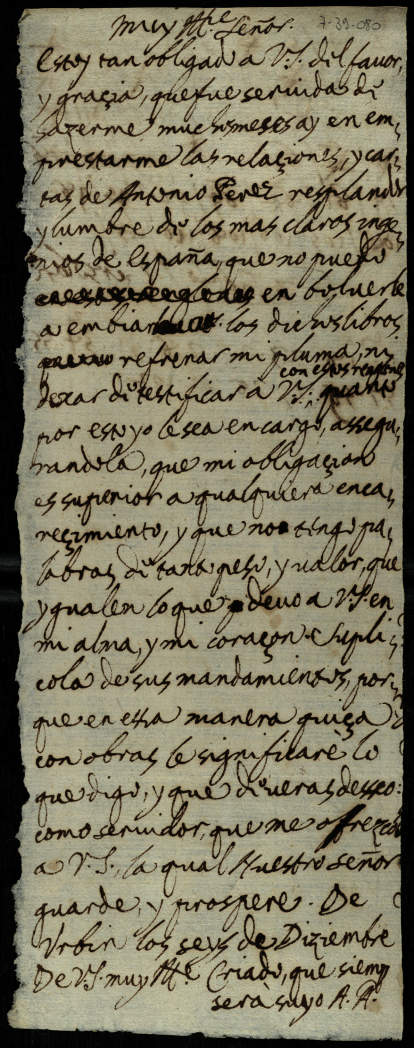 Muy Ill.e Señor. 7-39-080
Estoy tan obligado a V.S. del favor,
y graçia, que fue servida de
hazerme muchos meses ay en em-
prestarme las relaçiones, y car-
tas de Antonio Perez resplandor
y lumbre de los mas claros inge-
nios de España, que no puedo
en bolverle
a embiar los dichos libros
refrenar mi pluma, ni
con estos renglones
dexar de testificar a V.S. quanto
por esto yo le sea en cargo, assegu-
randola, que mi obligaçion
es superior a qualquiera enca-
reçimiento, y que no tengo pa-
labras de tanto peso, y valor, que
ygualen lo que devo a V.S. en
mi alma, y mi coraçon. Supli-
cola de sus mandamientos, por-
que en essa manera quiça
con obras le significarè lo
que digo, y que de veras desseo:
como servidor, que me ofrezco
a V.S., la qual Nuestro Señor
guarde, y prospere. De
Urbin los seys de Diziembre
De V.S. muy Ill.e Criado, que siemp
serà suyo A. A.